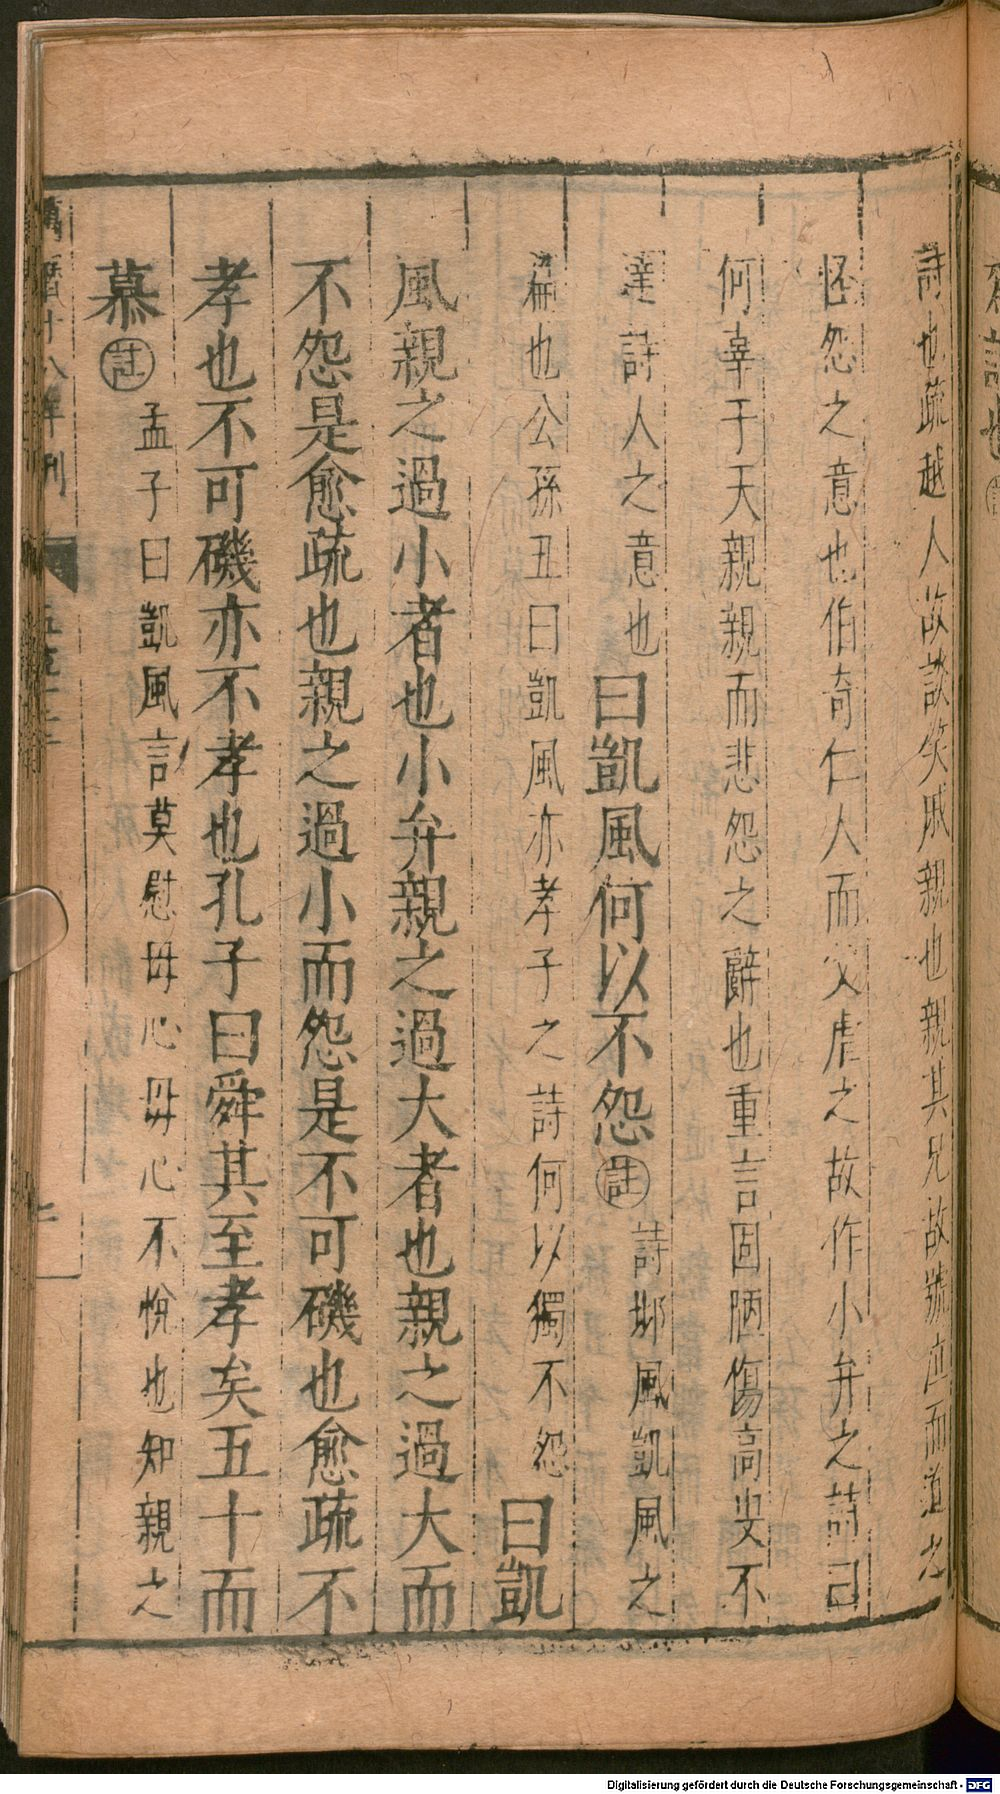 詩也疏越人故談笑戚親也親其兄故號泣而道之
怪怨之意也伯奇仁人而父虐之故作小弁之詩曰
何辜于天親親而悲怨之辭也重言固陋傷高叟不
達詩人之意也曰凱風何以不怨註詩邶風凱風之
篇也公孫丑曰凱風亦孝子之詩何以獨不怨曰凱
風親之過小者也小弁親之過大者也親之過大而
不怨是愈疏也親之過小而怨是不可磯也愈疏不
孝也不可磯亦不孝也孔子曰舜其至孝矣五十而
慕註孟子曰凱風言莫慰母心母心不悅也知親之
萬曆十八年刊
Digitalisierung gefördert durch die Deutsche Forschungsgemeinschaft - DFG